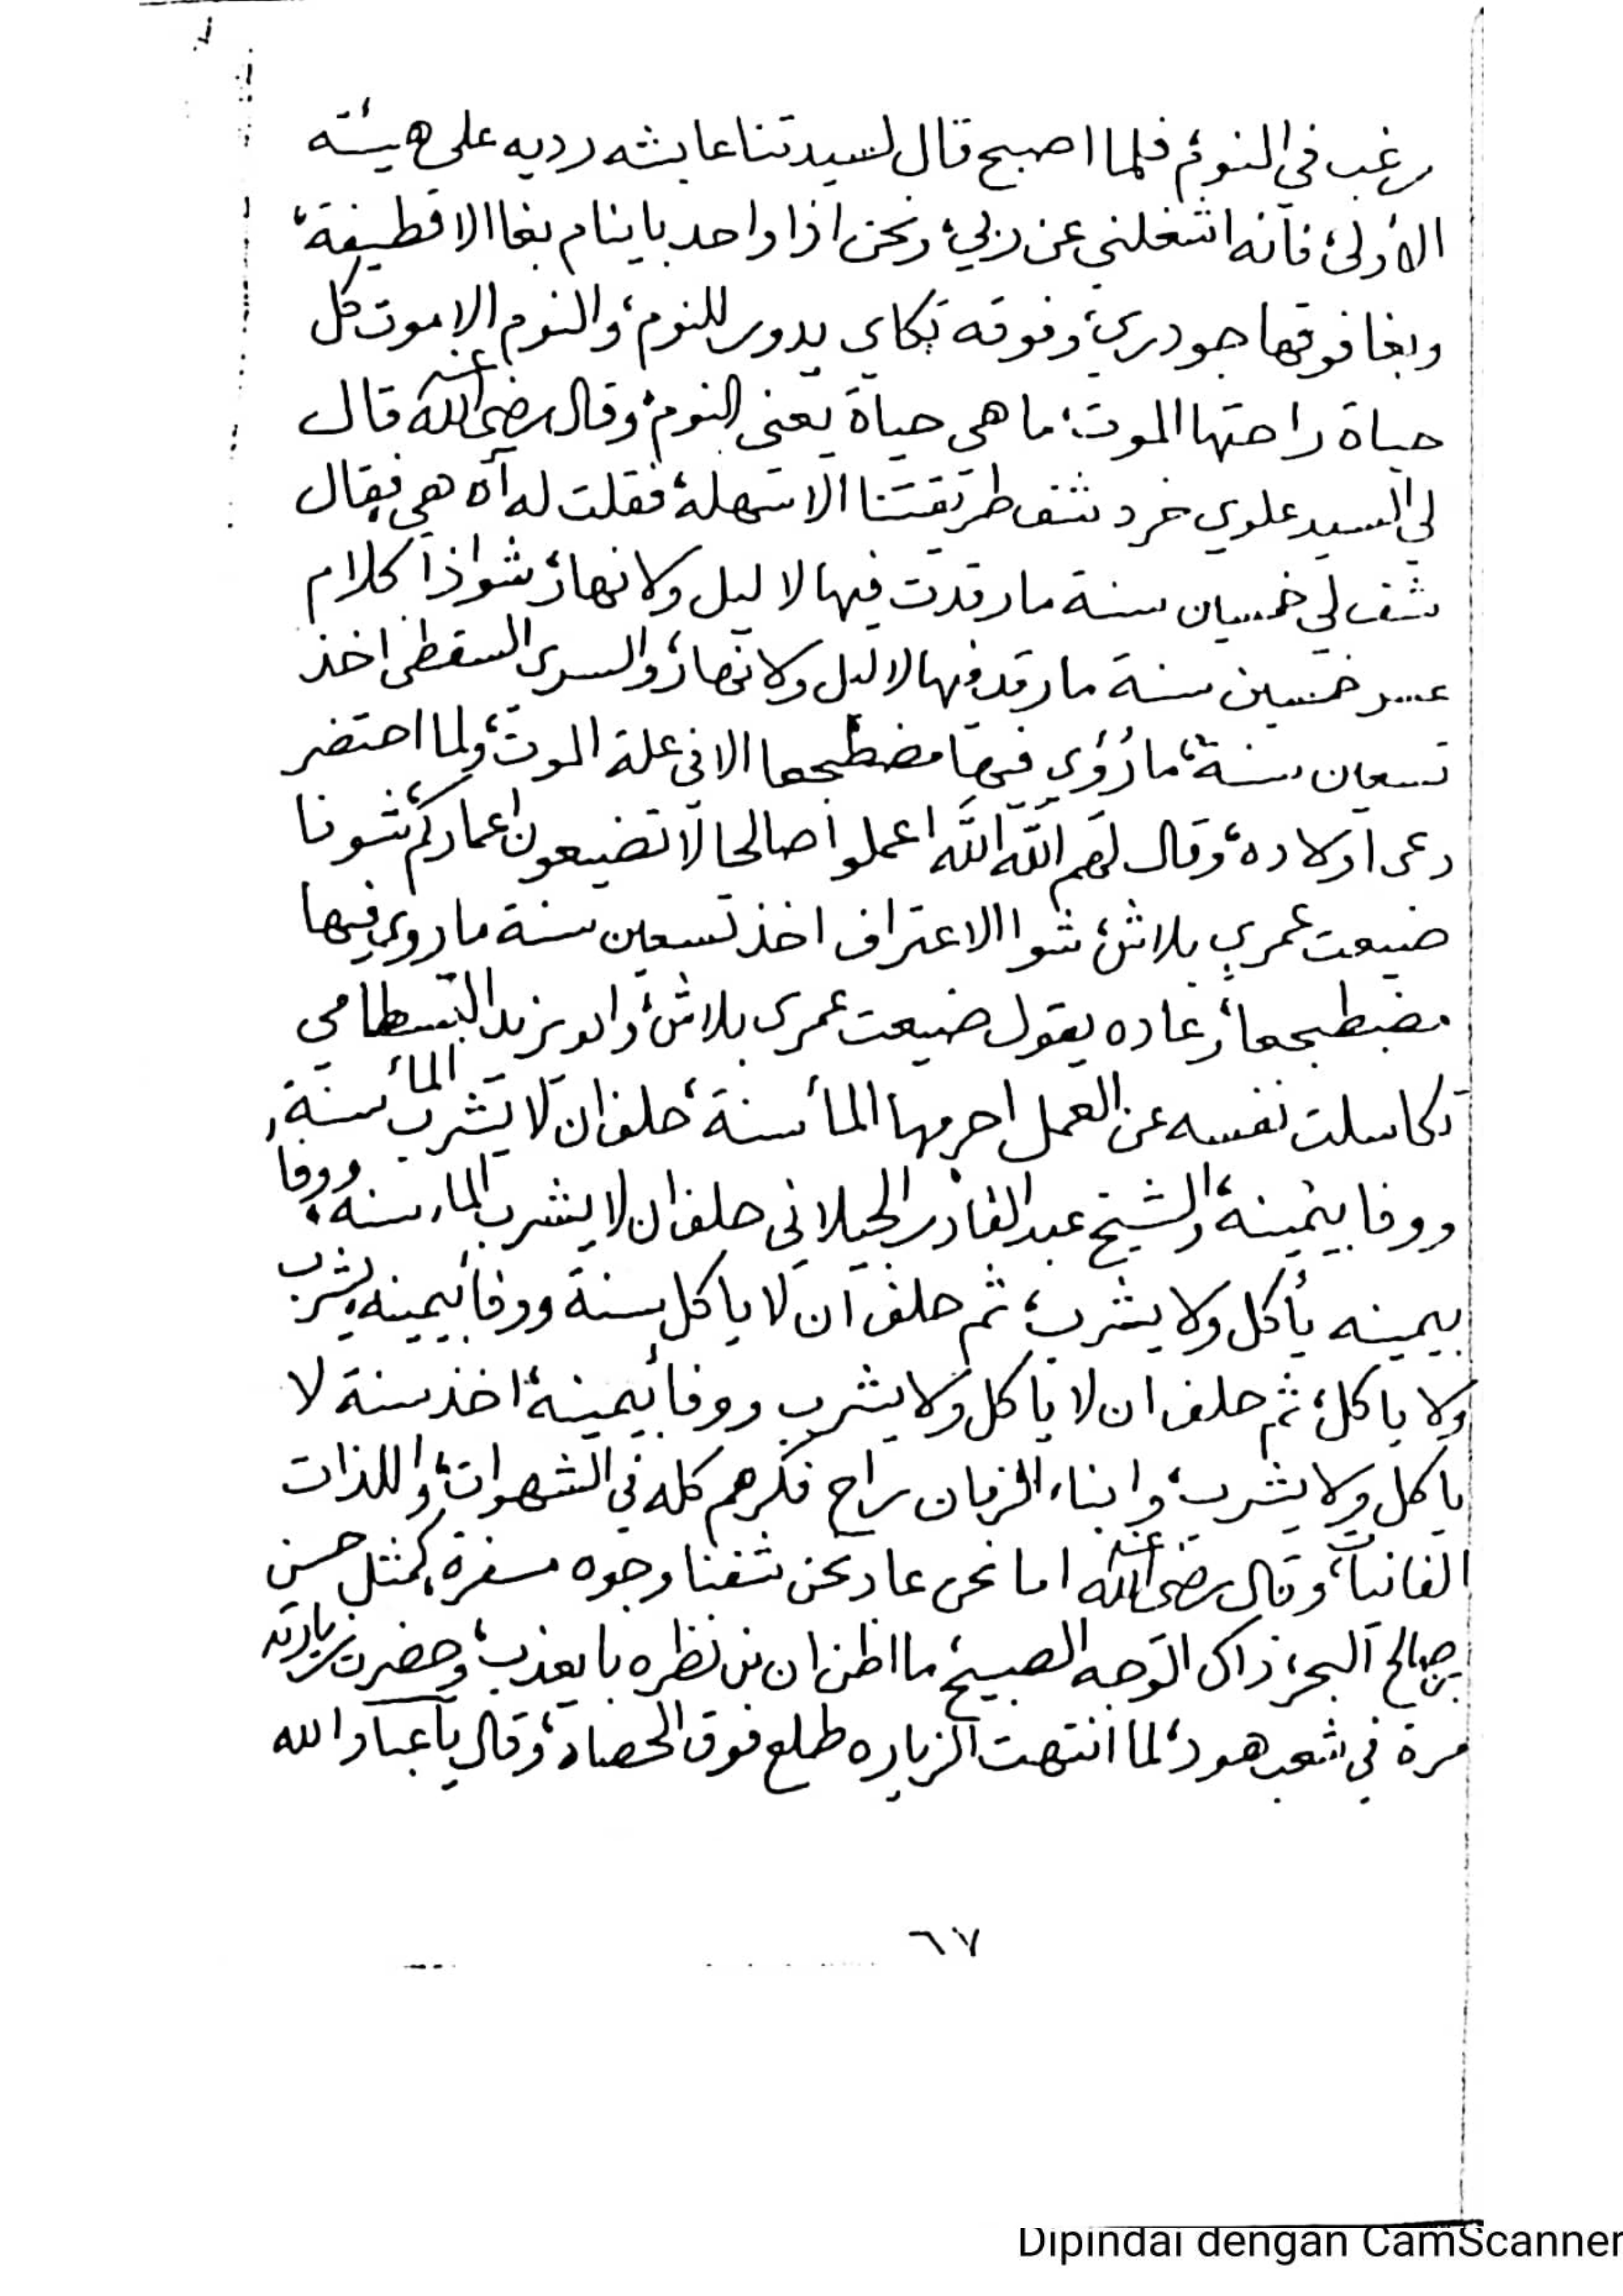 رغب في النوم، فلما اصبح قال لسيدتنا عايشه رديه على هيئته
الأولى، فانه اشغلني عن ربي، ونحن اذا واحد باينام بغا الا قطيفة،
وبغا فوقها جودري، وفوقه تكاي يدور للنوم، والنوم الا موت كل
حياة راحتها الموت، ما هي حياة يعني النوم، وقال رضي الله عنه قال
لي السيد علوي خرد شف طريقتنا الا سهلة، فقلت له آه هي، فقال
شف لي خمسين سنة ما رقدت فيها لا ليل ولا نهار، شوا اذا كلام
عسر خمسين سنة ما رقد فيها لا ليل ولا نهار، والسري السقطي اخذ
تسعين سنة، ما رُؤي فيها مضطجعا الا في علة الموت، ولما احتضر
دعى اولاده، وقال لهم الله الله اعملوا صالحا لا تضيعون اعماركم، شونا
ضيعت عمري بلاش، شوا الاعتراف اخذ تسعين سنة ما روي فيها
مضطجعا، وعاده يقول ضيعت عمري بلاش، وابو يزيد البسطامي
تكاسلت نفسه عن العمل احرمها الماء سنة، حلف ان لا يشرب الماء سنة،
ووفا بيمينه، والشيخ عبد القادر الجيلاني حلف ان لا يشرب الماء سنه، ووفا
بيمينه يأكل ولا يشرب، ثم حلف ان لا ياكل سنة ووفا بيمينه، يشرب
ولا ياكل، ثم حلف ان لا ياكل ولا يشرب ووفا بيمينه، اخذ سنة لا
ياكل ولا يشرب، وابناء الزمان راح فكرهم كله في الشهوات، واللذات
الفانيات، وقال رضي الله عنه اما نحن عاد نحن شفنا وجوه مسفرة، كمثل حسن
بن صالح البحر، ذاك الوجه الصبيح، ما اظن ان من نظره با يعذب، وحضرت زيارته
مرة في شعب هود، لما انتهت الزياره طلع فوق الحصاه، وقال يا عباد الله
٦٧
Dipindai dengan CamScanner